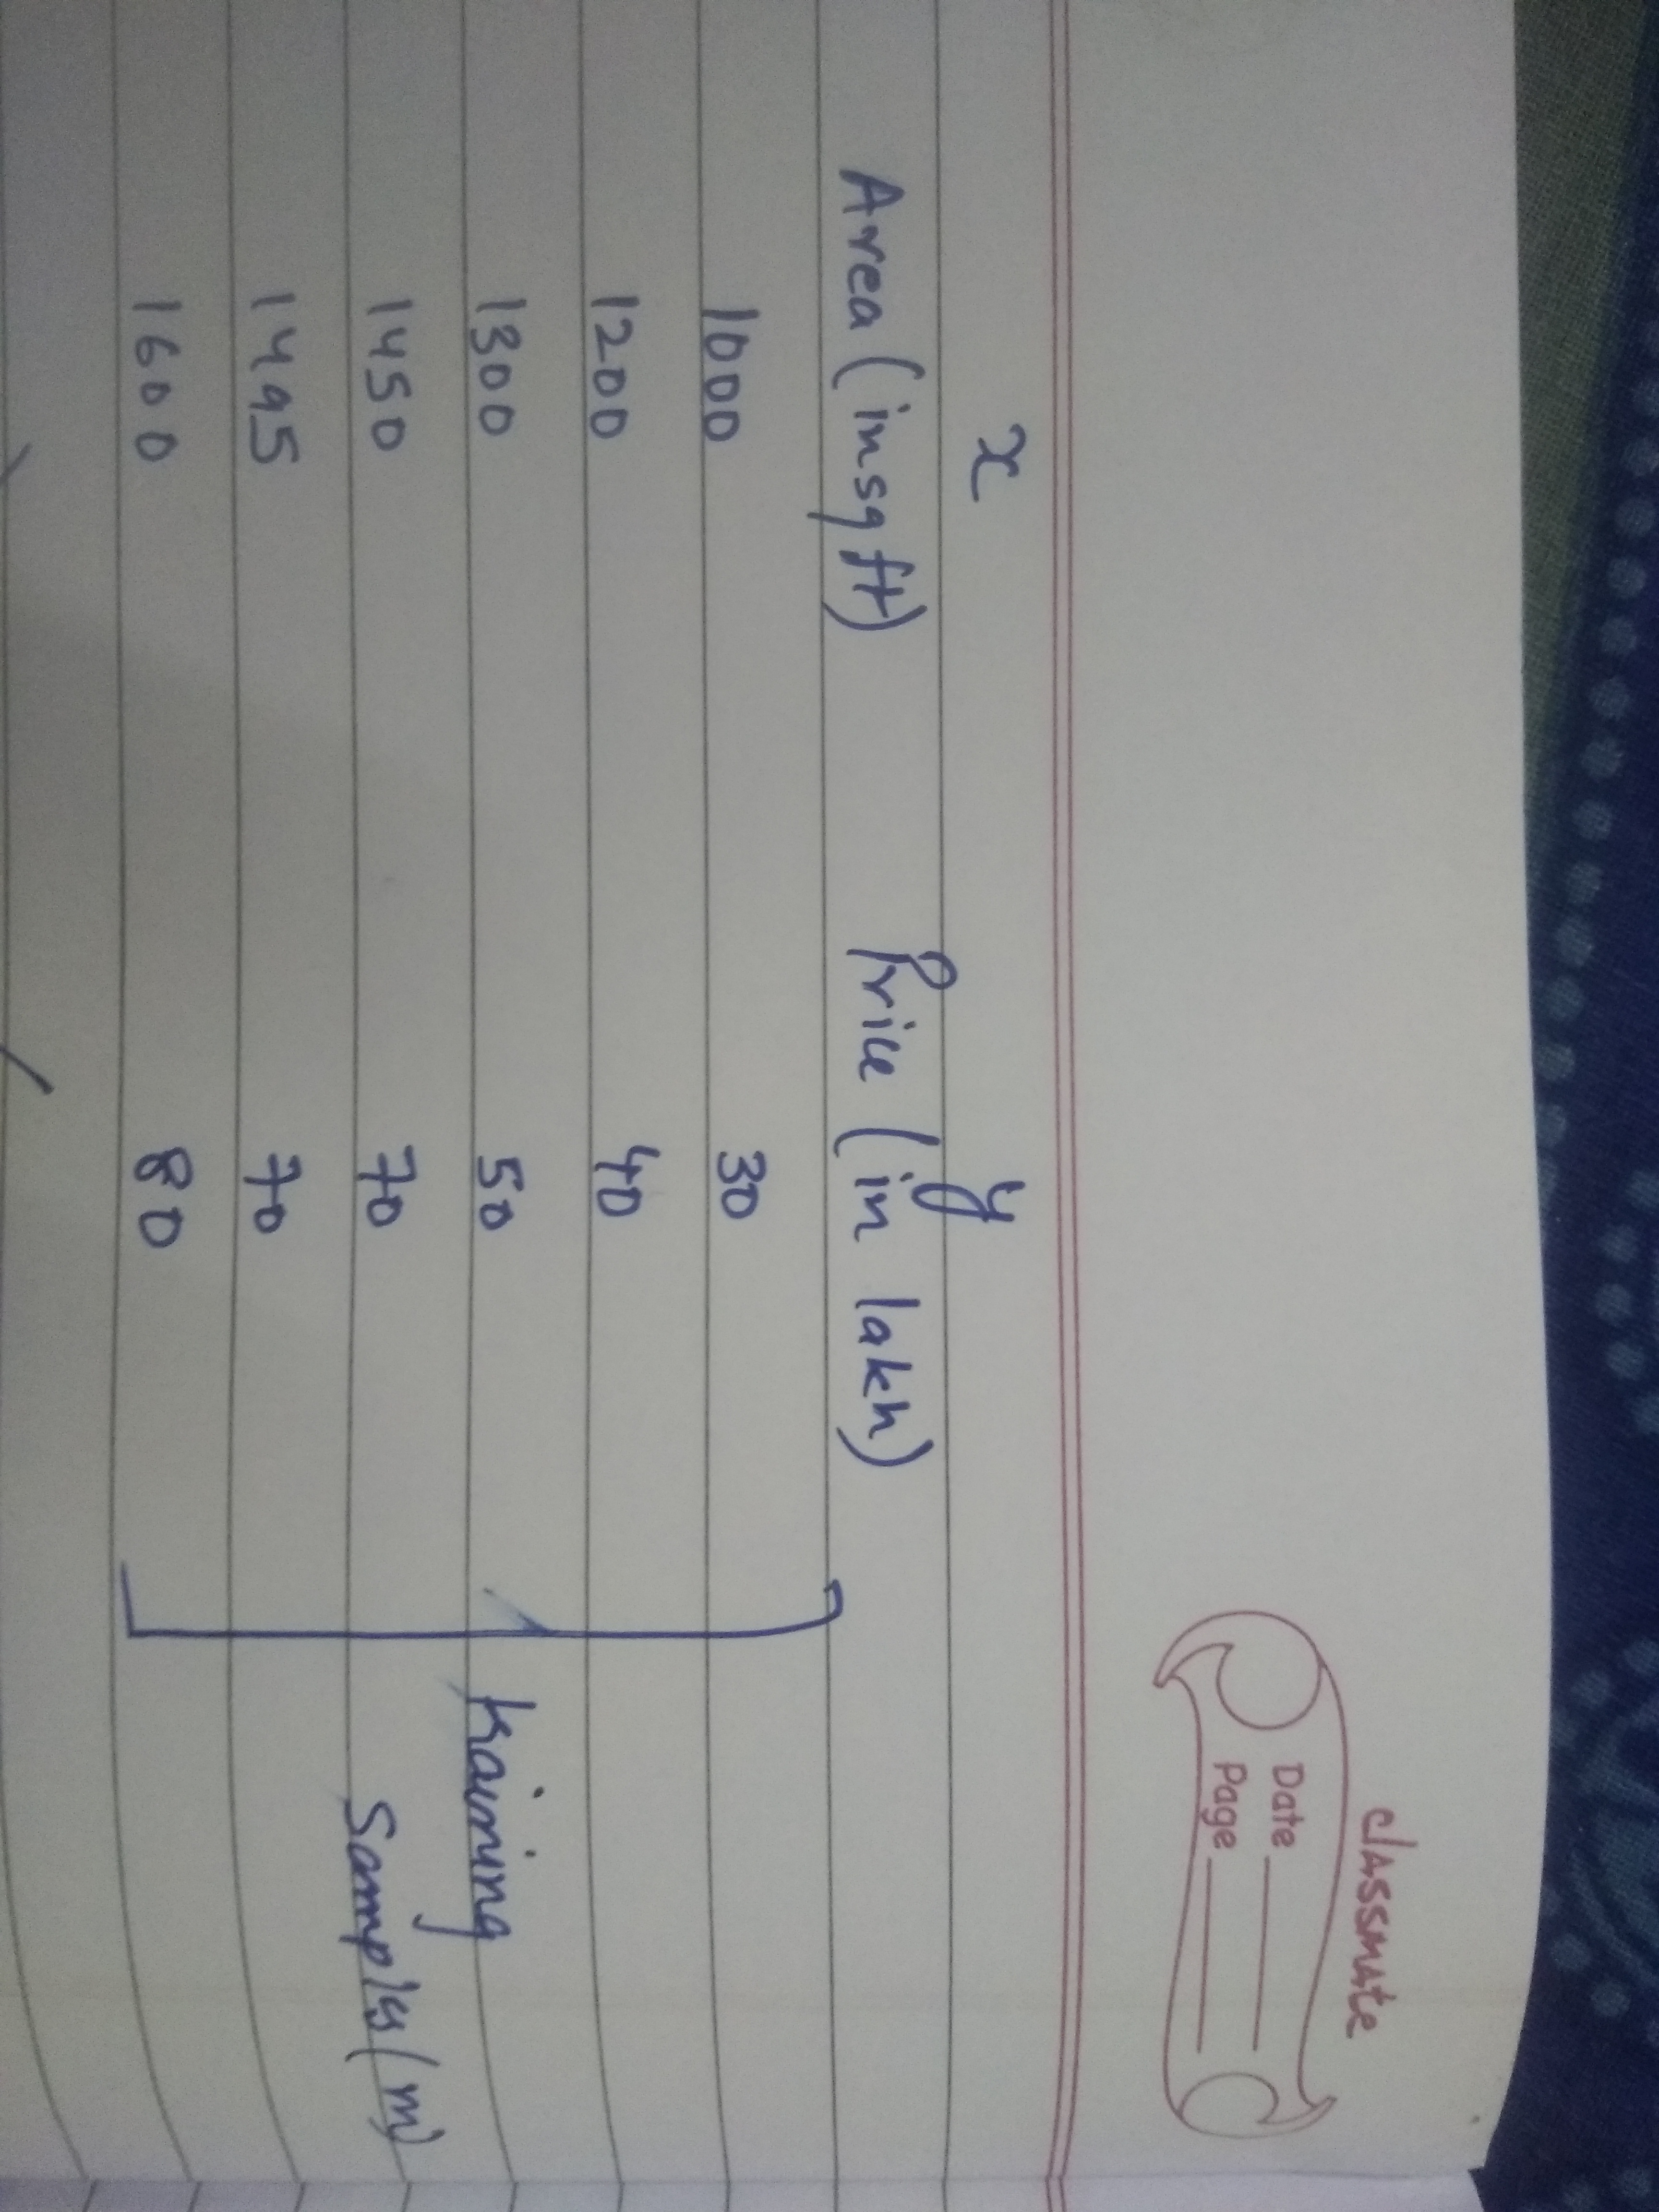 classmate
Date
Page
x y
Area (in sq ft) Price (in lakh)
1000 30
1200 40
1300 50
1450 70
1495 70
1600 80
training
Samples (m)